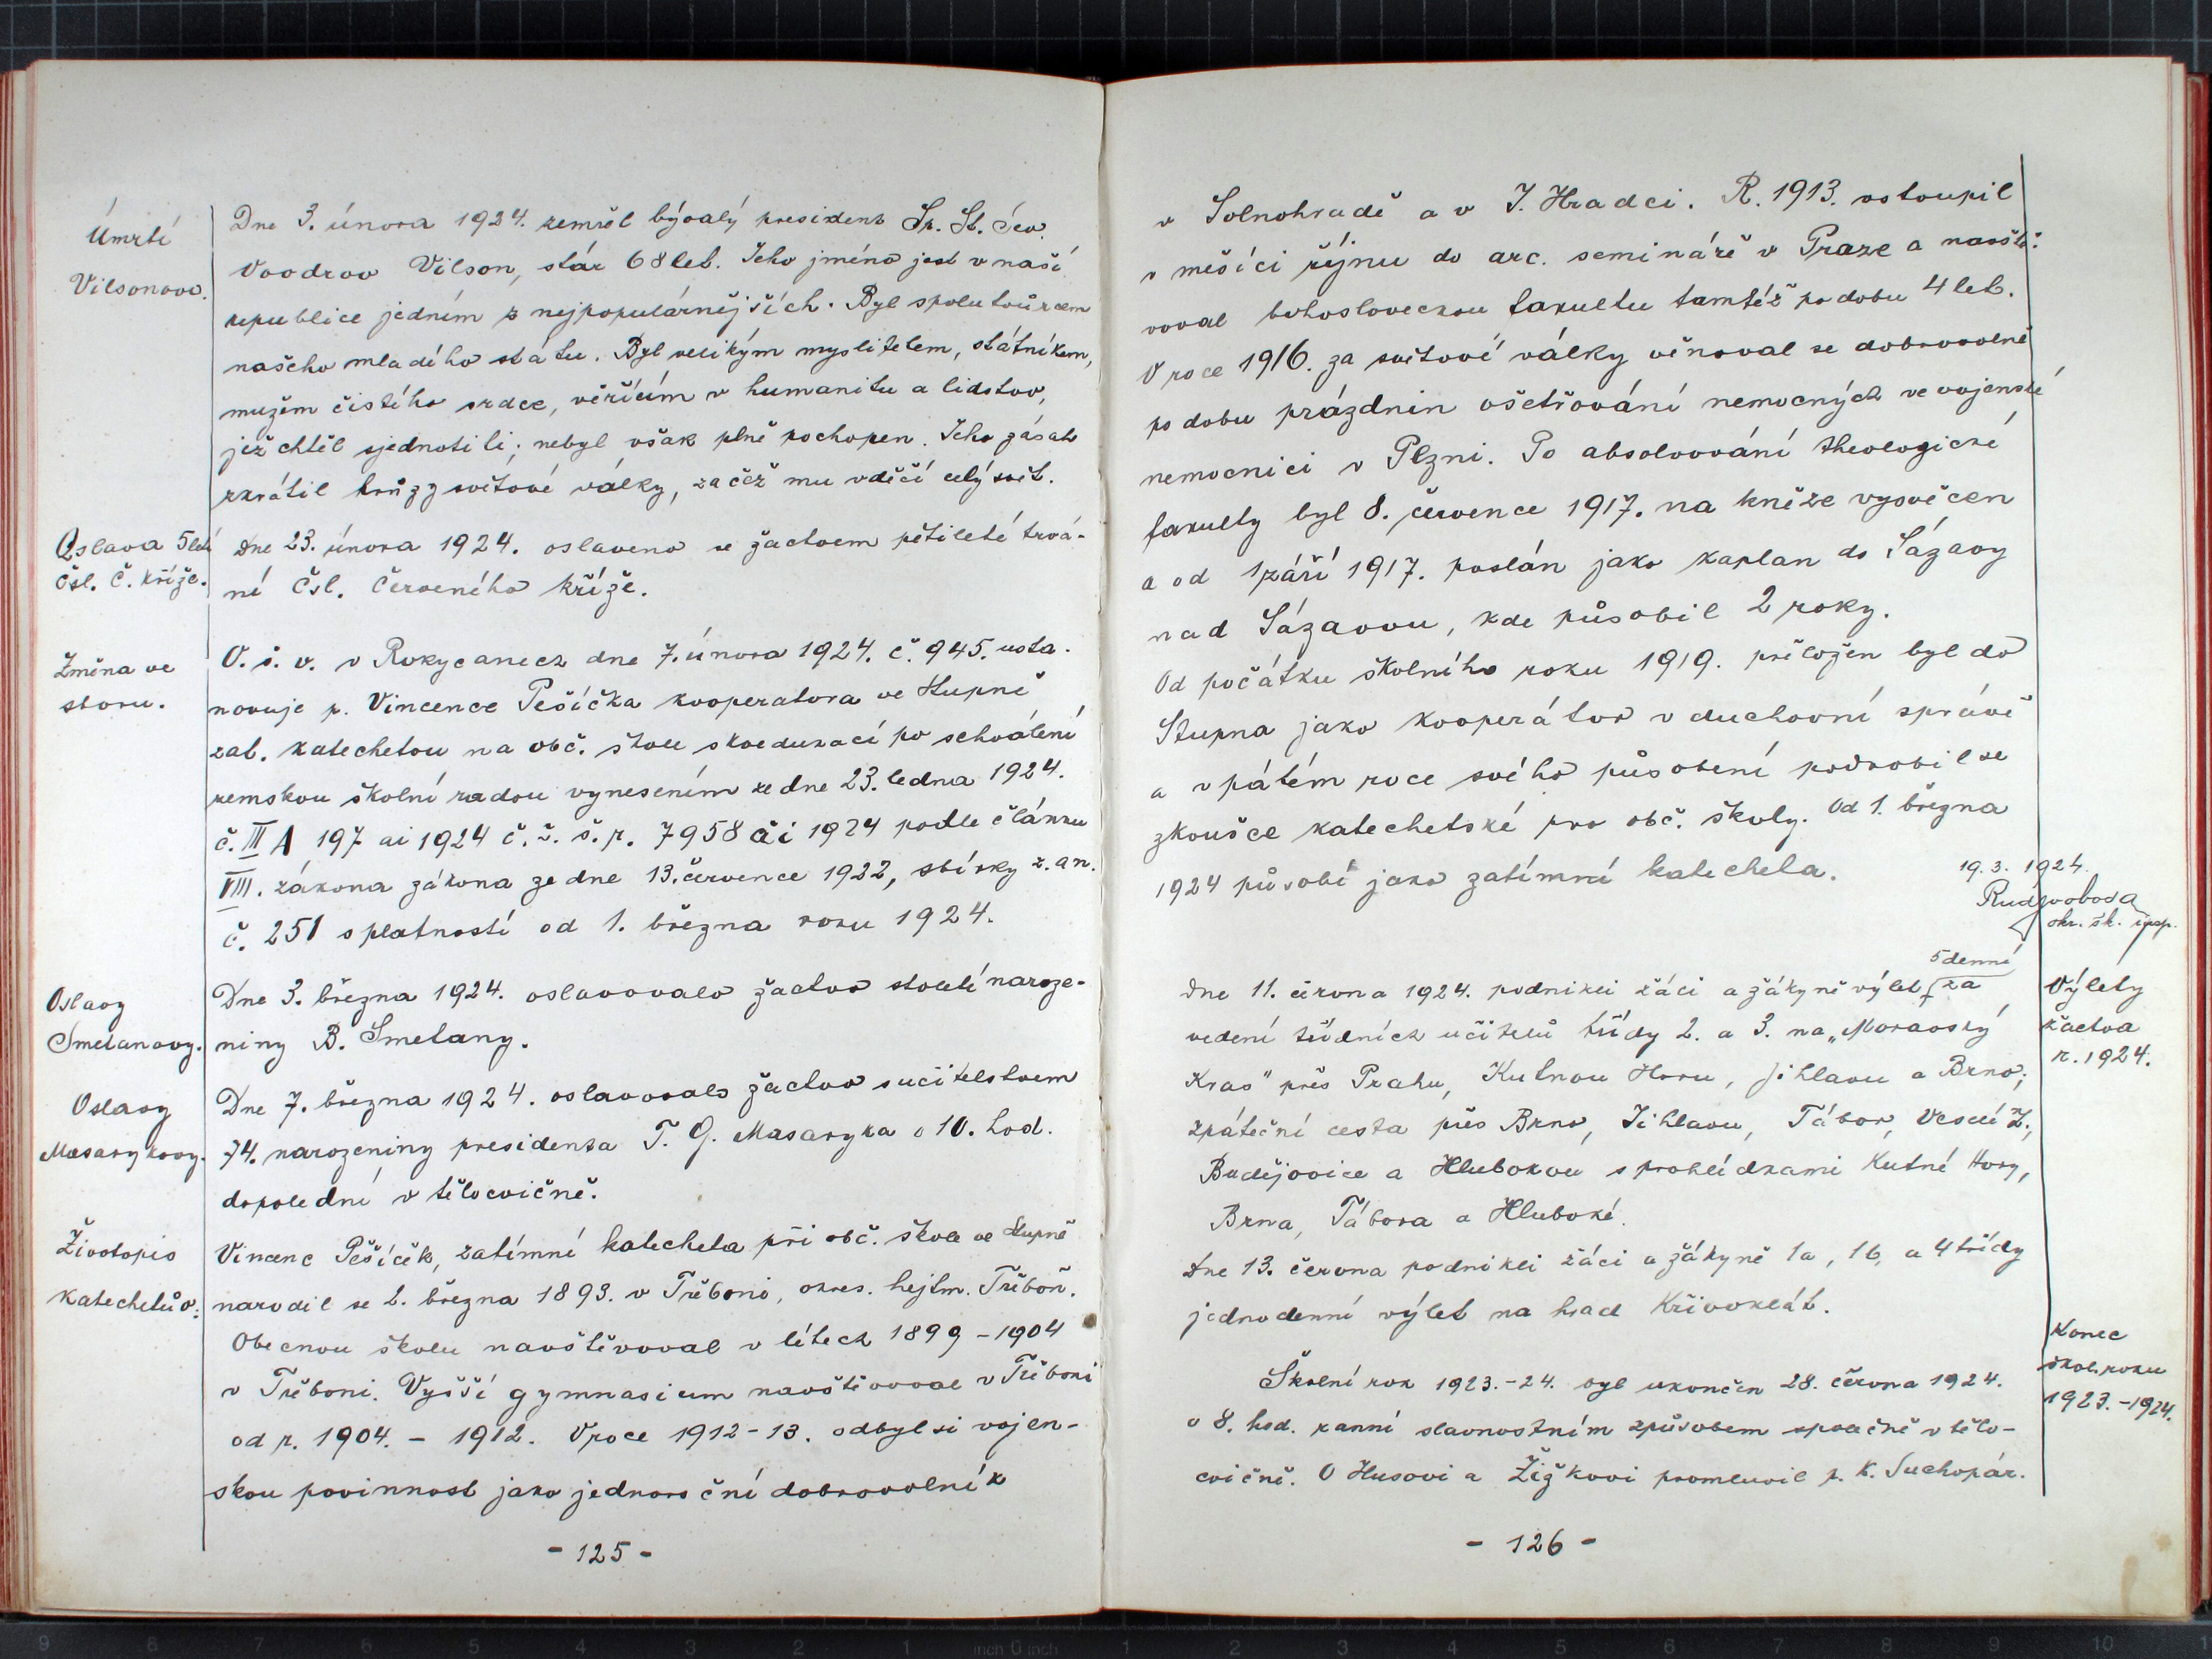 Úmrtí
Vilsonovo.
Dne 3. února 1924. zemřel bývalý president Sp. St. Sev.
Voodrov Vilson, stár 68 let. Jeho jméno jest v naší
republice jedním z nejpopulárnějších. Byl spolutvůrcem
našeho mladého státu. Byl velikým myslitelem, státníkem,
mužem čistého srdce, věřícím v humanitu a lidstvo,
jež chtěl sjednotiti; nebyl však plně pochopen. Jeho zásah
zkrátil hrůzy světové války, začež mu vděčí celý svět.
Oslava 5letí
Čsl. Č. kříže.
Dne 23. února 1924. oslaveno se žactvem pětileté trvá-
ní Čsl. Červeného kříže.
Změna ve
sboru.
O. š. v. v Rokycanech dne 7. února 1924. č. 945. usta-
novuje p. Vincence Pešíčka kooperatora ve Stupně
zat. katechetou na obč. škole s koedukací po schválení
zemskou školní radou vynesením ze dne 23. ledna 1924.
č. III A 197 ai 1924 č. z. š. r. 7958 ai 1924 podle článku
VIII. zákona zákona ze dne 13. července 1922, sbírky z. a n.
č. 251 s platností od 1. března roku 1924.
Oslavy
Smetanovy.
Dne 3. března 1924. oslavovalo žactvo stoleté naroze-
niny B. Smetany.
Oslavy
Masarykovy.
Dne 7. března 1924. oslavovalo žactvo s učitelstvem
74. narozeniny presidenta T. G. Masaryka o 10. hod.
dopolední v tělocvičně.
Životopis
katechetův:
Vincenc Pešíček, zatímní katecheta při obč. škole ve Stupně
narodil se 2. března 1893. v Třeboni, okres. hejtm. Třeboň.
Obecnou školu navštěvoval v létech 1899 - 1904
v Třeboni. Vyšší gymnasium navštěvoval v Třeboni
od r. 1904. - 1912. V roce 1912-13. odbyl si vojen-
skou povinnost jako jednoroční dobrovolník
- 125 -
v Solnohradě a v J. Hradci. R. 1913. vstoupil
v měšíci říjnu do arc. semináře v Praze a navště-
voval bohosloveckou fakultu tamtéž po dobu 4 let.
V roce 1916. za světové války věnoval se dobrovolně
po dobu prázdnin ošetřování nemocných ve vojenské
nemocnici v Plzni. Po absolvování theologické
fakulty byl 8. července 1917. na kněze vysvěcen
a od 1 září 1917. poslán jako kaplan do Sázavy
nad Sázavou, kde působil 2 roky.
Od počátku školního roku 1919. přeložen byl do
Stupna jako kooperátor v duchovní správě
a v pátém roce svého působení podrobil se
zkoušce katechetské pro obč. školy. Od 1. března
1924 působí jako zatímní katecheta.
19. 3. 1924.
Rud. Svoboda
okr. šk. insp.
Výlety
žactva
r. 1924.
5 denní
Dne 11. června 1924. podnikli žáci a žákyně výlet za
vedení třídních učitelů třídy 2. a 3. na „Moravský
Kras" přes Prahu, Kutnou Horu, Jihlavu a Brno;
zpáteční cesta přes Brno, Jihlavu, Tábor, Veselí Z.,
Budějovice a Hlubokou s prohlídkami Kutné Hory,
Brna, Tábora a Hluboké.
Dne 13. června podnikli žáci a žákyně 1a, 1b, a 4 třídy
jednodenní výlet na hrad Křivoklát.
Konec
škol. roku
1923.-1924.
Školní rok 1923.-24. byl ukončen 28. června 1924.
o 8. hod. ranní slavnostním způsobem společně v tělo-
cvičně. O Husovi a Žižkovi promluvil p. K. Suchopár.
- 126 -